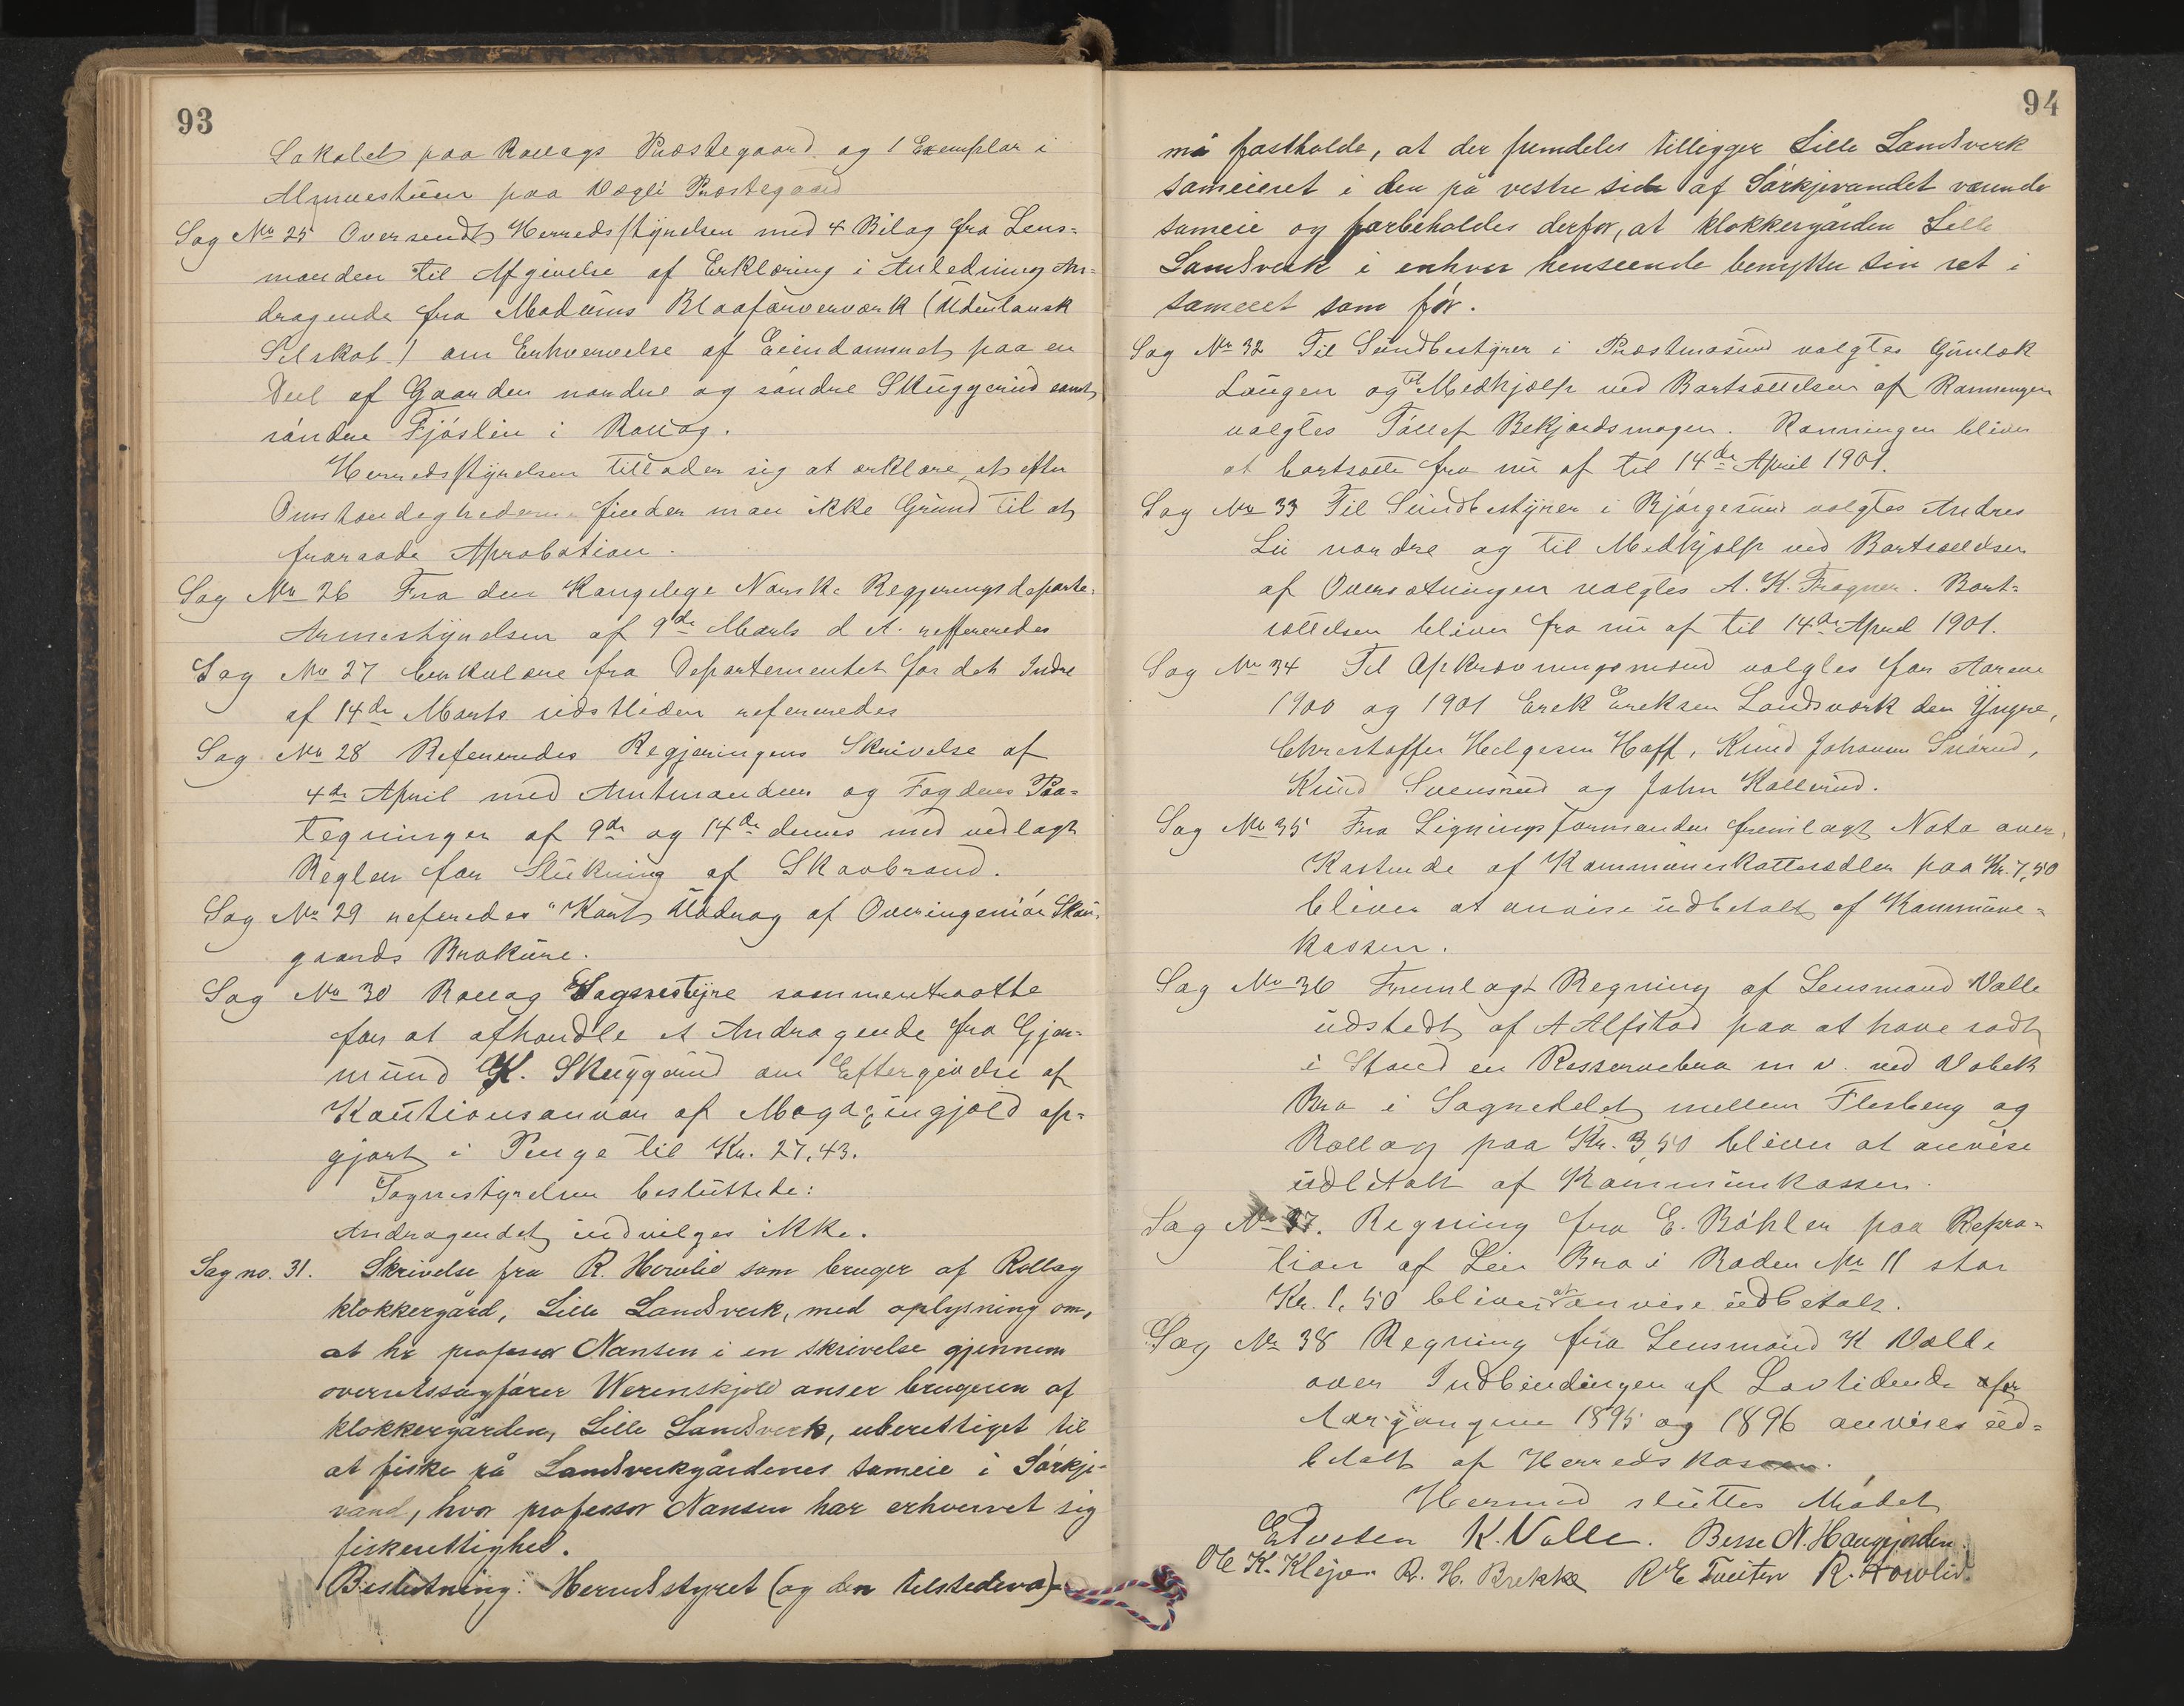 93
Lokalet paa Rollags Præstegaard og 1 Exemplar i
Almuestuen paa Vægli Præstegaard
Sag No 25 Oversendt Herredsstyrelsen med 4 Bilag fra Lens=
manden til Afgivelse af Erklæring i Anledning An=
dragende fra Modums Blaafarveværk (Udenlansk
Selskab) om Erhvervelse af Eiendomsret paa en
Deel af Gaarden nordre og søndre Skuggerud samt
söndre Fjöslin i Rollag.
Herredsstyrelsen tillader sig at erklære, at efter
Omstændighederne finder man ikke Grund til at
fraraade Aprobation.
Sag No 26 Fra den Kongelege Norske Regjerings departe=
Armestyrelsen af 9de Marts d A. reffereredes
Sag No 27 Cirkulære fra Departementet for det Indre
af 14de Marts sidstleden refereredes
Sag No 28 Refereredes Regjeringens Skrivelse af
4de April med Amtmandens og Fogdens Paa=
tegninger af 9de og 14de dennes med vedlagt
Regler for Slukning af Skovbrand.
Sag No 29 referedes "Kort Uddrag af Overingeniör Skou=
gaards Brokure.
Sag No 30 Rollag Sognestyre sammentraatte
for at afhandle et Andragende fra Gjer=
mund K. Skuggerud om Eftergivelse af
Kautionsansvar af Magazingjæld op=
gjort i Penge til Kr. 27,43.
Sognestyrelsen besluttede:
Andragendet indvilges ikke.
Sag no. 31. Skrivelse fra R. Howlid som bruger af Rollag
klokkergård, Lille Landsverk, med oplysning om,
at hr professor Nansen i en skrivelse gjennem
overretssagfører Werenskjold anser brugeren af
klokkergården, Lille Landsverk, uberettiget til
at fiske på Landsverkgårdenes sameie i Sörkje-
vand, hvor professor Nansen har erhvervet sig
fiskerettighed.
Beslutning: Herredsstyret (og den tilstedevæ)
94
må fastholde, at der fremdeles tilligger Lille Landsverk
sameieret i den på vestre side af Sörkjevandet værende
sameie og forbeholdes derfor, at klokkergården Lille
Landsverk i enhver henseende benytter sin ret i
sameiet som för.
Sag No 32 Til Sundbestyrer i Præstmosund valgtes Gunlæk
Laugen og til Medhjælp ved Bortsættelsen af Ronningen
valgtes Tollef Bekjordsmogen. Ronningen bliver
at bortsætte fra nu af til 14de April 1901.
Sag No 33 Til Sundbestyrer i Björgesund valgtes Andres
Lii nordre og til Medhjelp ved Bortsættelsen
af Oversætningen valgtes A. K. Fragner. Bort=
sættelsen bliver fra nu af til 14de April 1901.
Sag No 34 Til Opkrævningsmænd valgtes for Aarene
1900 og 1901 Erek Ereksen Landsværk den Yngre,
Christoffer Helgesen Hoff, Knud Johannes Traaen,
Knud Svensrud og John Kollerud.
Sag No 35 Fra Ligningsformanden fremlagt Nota over
Kostende af Kommuneskattesedler paa Kr. 7,50
bliver at anvise udbetalt af Kommune=
kassen.
Sag No 36 Fremlagt Regning af Lensmand Valle
udstedt af A Alfstad paa at have sadt
i Stand en Resservebro m v. ved Vobek
Bro i Sognedelet mellem Flesberg og
Rollag paa Kr. 3,50 bliver at anvise
udbetalt af Kommunekassen.
Sag No 37. Regning fra E. Böhler paa Repra=
tion af Lein Bro i Roden No 11 stor
Kr. 1,50 bliver at anvise udbetalt.
Sag No 38 Regning fra Lensmand K Valle
over Indbindingen af Lovtidende for
Aargangene 1895 og 1896 anvises ud=
betalt af Herredskassen.
Hermed sluttes Mödet
E Tveten K. Valle. Besse N. Haugjorden.
Ole K. Klejva R. H. Brekke R E Tveiten R. Howlid.